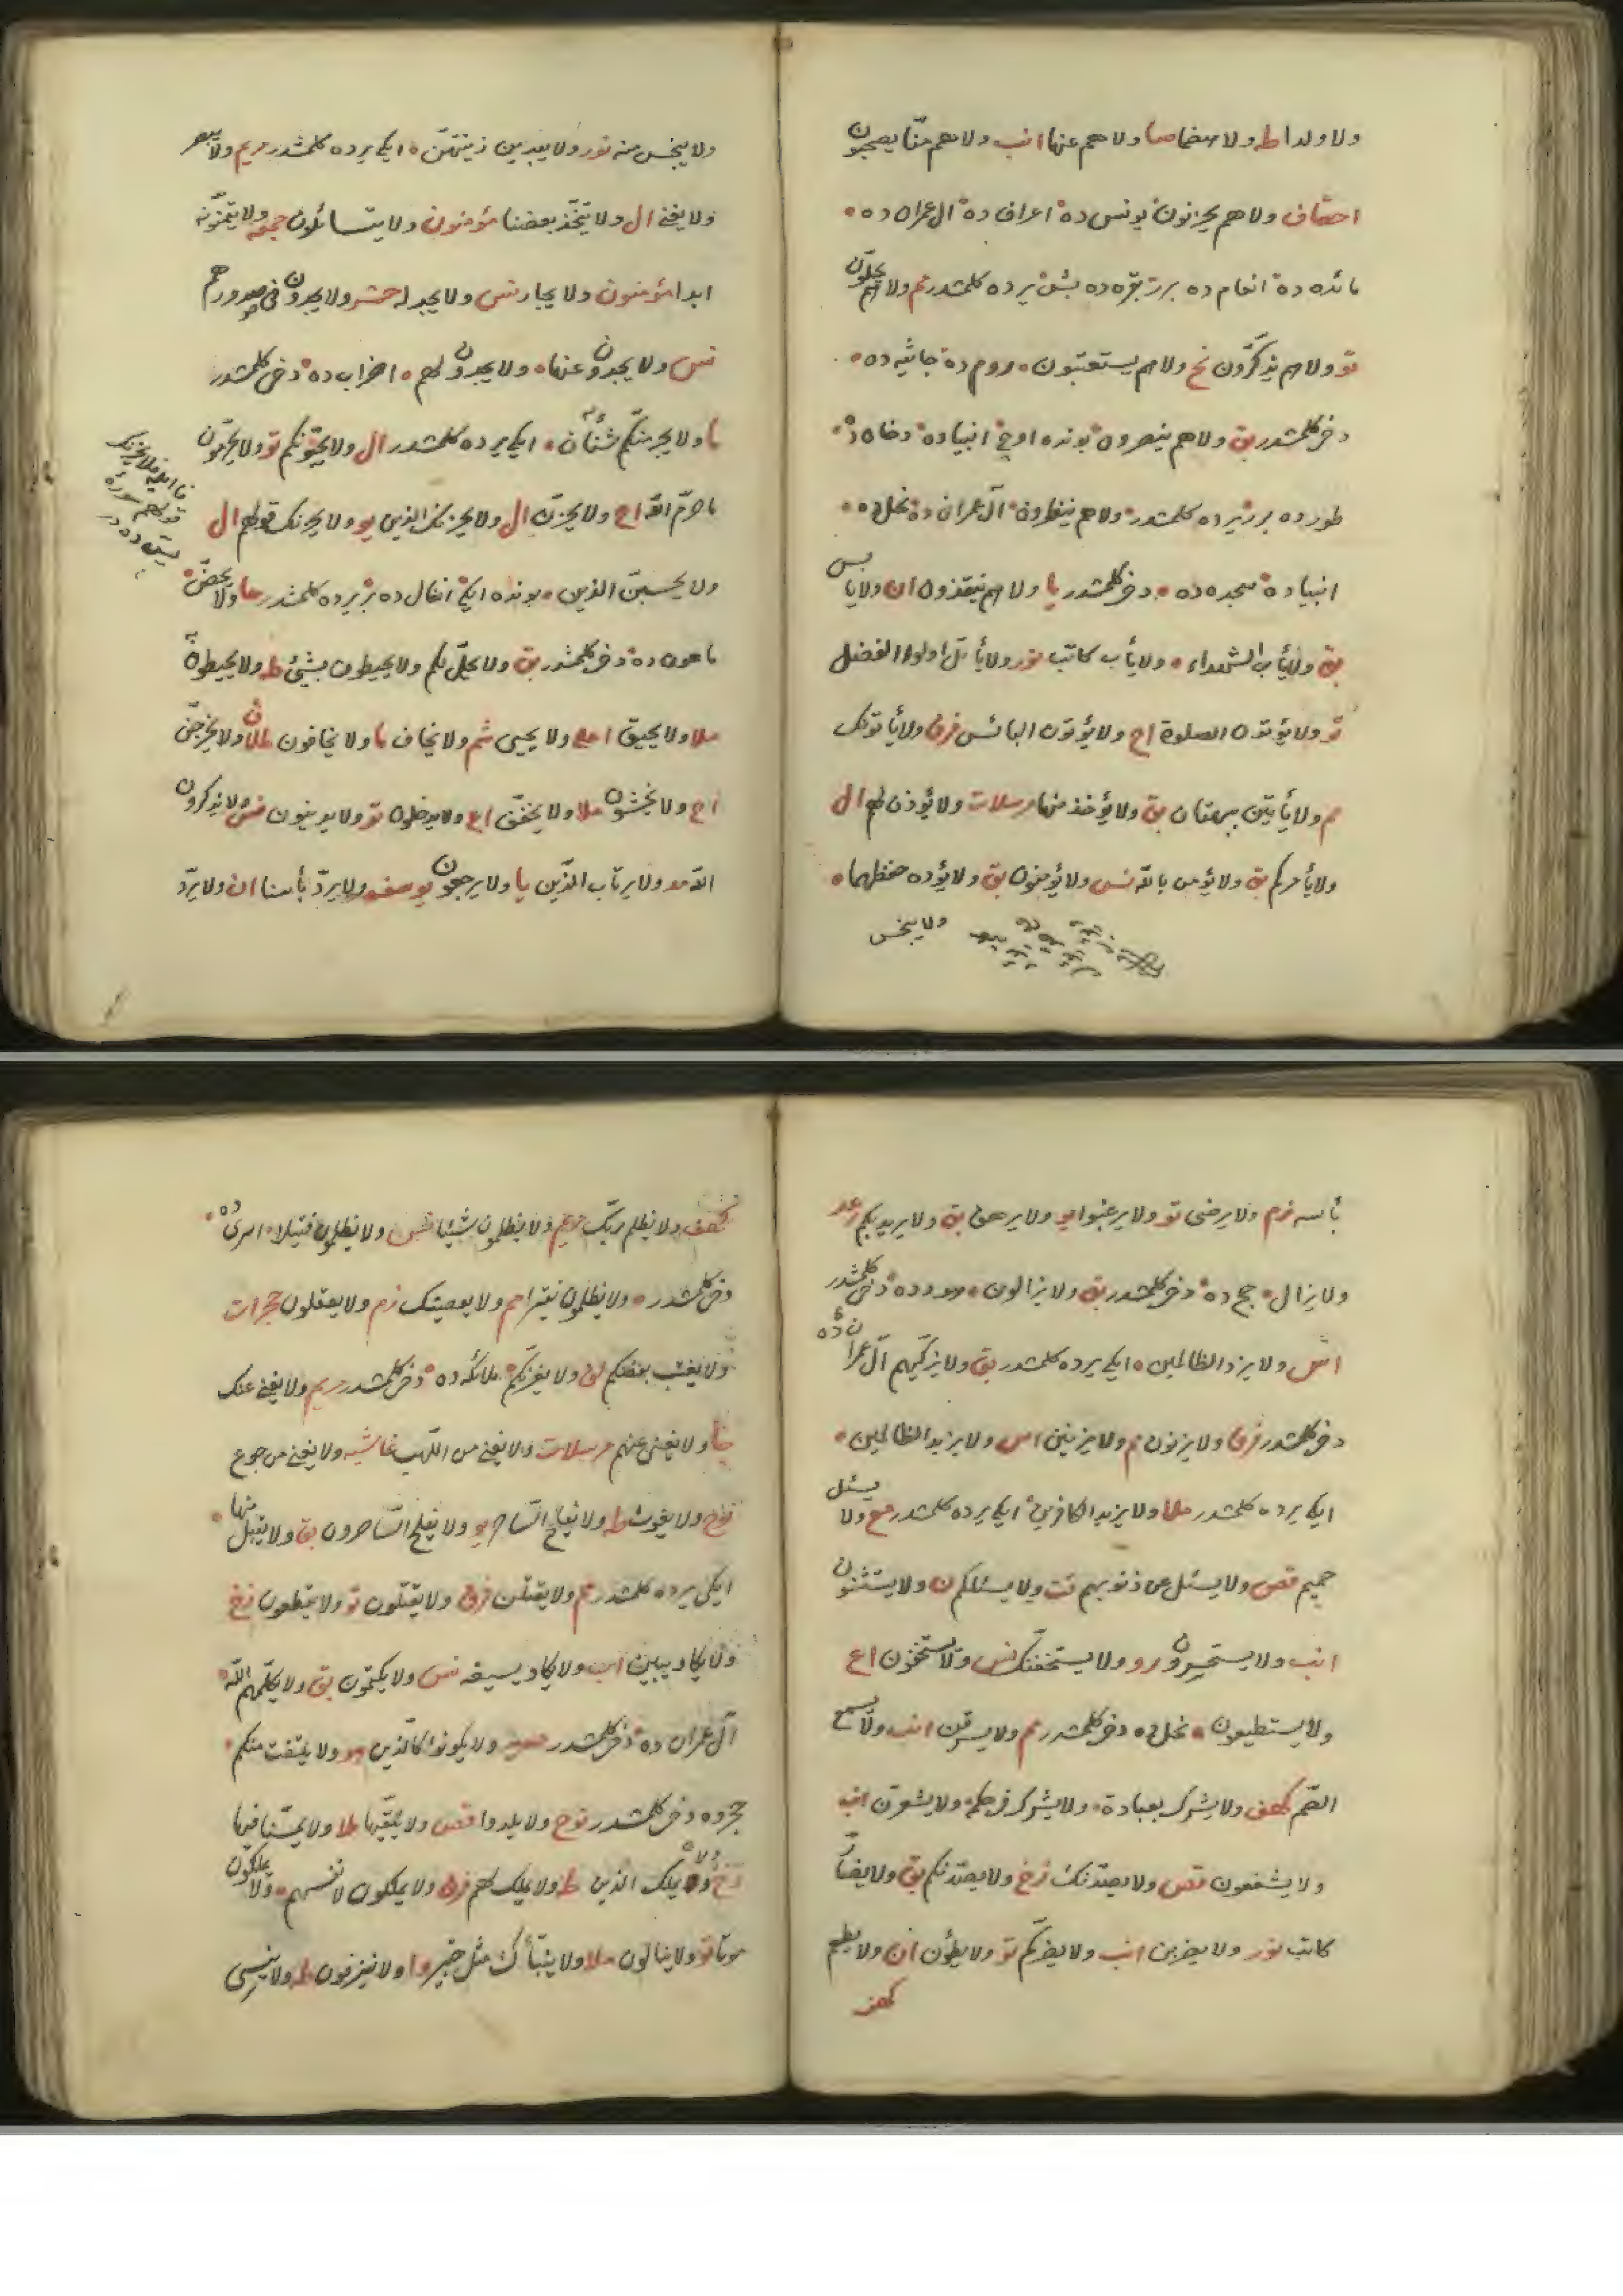 ولا ولدا ط ولا هضما صا ولا هم عنها انب ولا هم منّا يصحبون
احقاف ولا هم يحزنون يونس ده اعراف ده ال عمران ده
مائده ده انعام ده برر بقره ده بش يرده كلمشدر تم ولا هم
تو ولا هم يذكّرون نح ولا هم يستعتبون روم ده جاثيه ده
دخى كلمشدر بق ولا هم ينصرون بونده اوج انبياده دخان
طور ده برر يرده كلمشدر ولا هم ينظرون آل عمران ده نحل ده
انبياده سجده ده دخى كلمشدر يا ولا هم ينقذون ان ولا ياب
بق ولا يأب الشهداء ولا يأب كاتب نور ولا يأتل اولوا الفضل
تو ولا يؤتون الصلوة اح ولا يؤتون البائس فرق ولا يأتونك
م ولا يأتين ببهتان بق ولا يؤخذ منها مرسلات ولا يؤذن لهم ال
ولا يأمركم بق ولا يؤمن بالله نس ولا يؤمنون بق ولا يؤده حفظهما
ولا يبخس
ولا يبخس منه نور ولا يبدين زينتهنّ ايكى يرده كلمشدر مريم ولا يبصر
ولا يغنى ال ولا يتخذ بعضنا مؤمنون ولا يتسائلون جمعه ولا يتمنّونه
ابدا مؤمنون ولا يجار نس ولا يجد له حشر ولا يجدون فى صدورهم
نس ولا يجدون عنها ولا يجدون لهم احزاب ده دخى كلمشدر
ما ولا يجرمنّكم شنأن ايكى يرده كلمشدر ال ولا يحرّمون
ما حرّم الله اح ولا يحزنّ ال ولا يحزنك الذين يو ولا يحزنك قولهم ال
ولا يحسبنّ الذين بونده ايكى انفال ده بر يرده كلمشدر حا ولا يحضّ
ماعون ده دخى كلمشدر بق ولا يحلّ لكم ولا يحيطون بشئ ط ولا يحيطون
ملا ولا يحيق اعل ولا يحيى شم ولا يخاف ما ولا يخافون طلا ولا يخرجن
اح ولا يخشون ملا ولا يخفف اع ولا يدخلون تو ولا يدينون مش لا يذكرون
الله مد ولا يرتاب الذين يا ولا يرجعون يوسف ولا يردّ بأسنا ان ولا يردّ
بأسه زم ولا يرضى تو ولا يرغبوا يو ولا يرهق بق ولا يريد بكم رعد
ولا يزال حج ده دخى كلمشدر بق ولا يزالون هود ده دخى كلمشدر
اس ولا يزد الظالمين ايكى يرده كلمشدر بق ولا يزكّيهم آل عمران ده
دخى كلمشدر فرق ولا يزنون م ولا يزنين اس ولا يزيد الظالمين
ايكى يرده كلمشدر ملا ولا يزيد الكافرين ايكى يرده كلمشدر مع ولا يسئل
حميم قص ولا يسئل عن ذنوبهم قت ولا يسئلكم ن ولا يستثنون
انب ولا يستحسرون رو ولا يستخفّنّك نس ولا يستخفون اع
ولا يستطيعون نحل ده دخى كلمشدر م ولا يسرقن انب ولا يسمع
الصّم كهف ولا يشرك بعبادة ولا يشرك فى حكمه ولا يشعرن انب
ولا يشفعون قص ولا يصدّنّك زخ ولا يصدّنكم بق ولا يضارّ
كاتب نور ولا يضربن انب ولا يضركم تو ولا يطؤن ان ولا يطعم
كهف
كهف ولا يظلم ربّك مريم ولا يظلمون شيئا نس ولا يظلمون فتيلا اسرى ده
دخى كلمشدر ولا يظلمون نقيرا م ولا يعصينك زم ولا يعقلون حجرات
ولا يغتب بعضكم لق ولا يغرّنّكم ملائكه ده دخى كلمشدر مريم ولا يغنى عنك
جا ولا يغنى عنهم مرسلات ولا يغنى من اللّهب غاشيه ولا يغنى من جوع
نوح ولا يغوث طه ولا يفلح السّاحر يو ولا يفلح السّاحرون بق ولا يقبل منها
ايكى يرده كلمشدر م ولا يقتلن فرق ولا يقتلون تو ولا يقطعون زخ
ولا يكاد يبين اب ولا يكاد يسيغه نس ولا يكتمون بق ولا يكلّمهم الله
آل عمران ده دخى كلمشدر حديد ولا يكونوا كالّذين هو ولا يلتفت منكم
حجر ده دخى كلمشدر نوح ولا يلدوا قص ولا يلقّيها ملا ولا يمسّنا فيها
زخ ولا يملك الذين ط ولا يملك لهم فرق ولا يملكون لانفسهم ولا يملكون
موتا تو ولا ينالون ملا ولا ينبّأك مثل خبير وا ولا ينزفون ط ولا ينسى